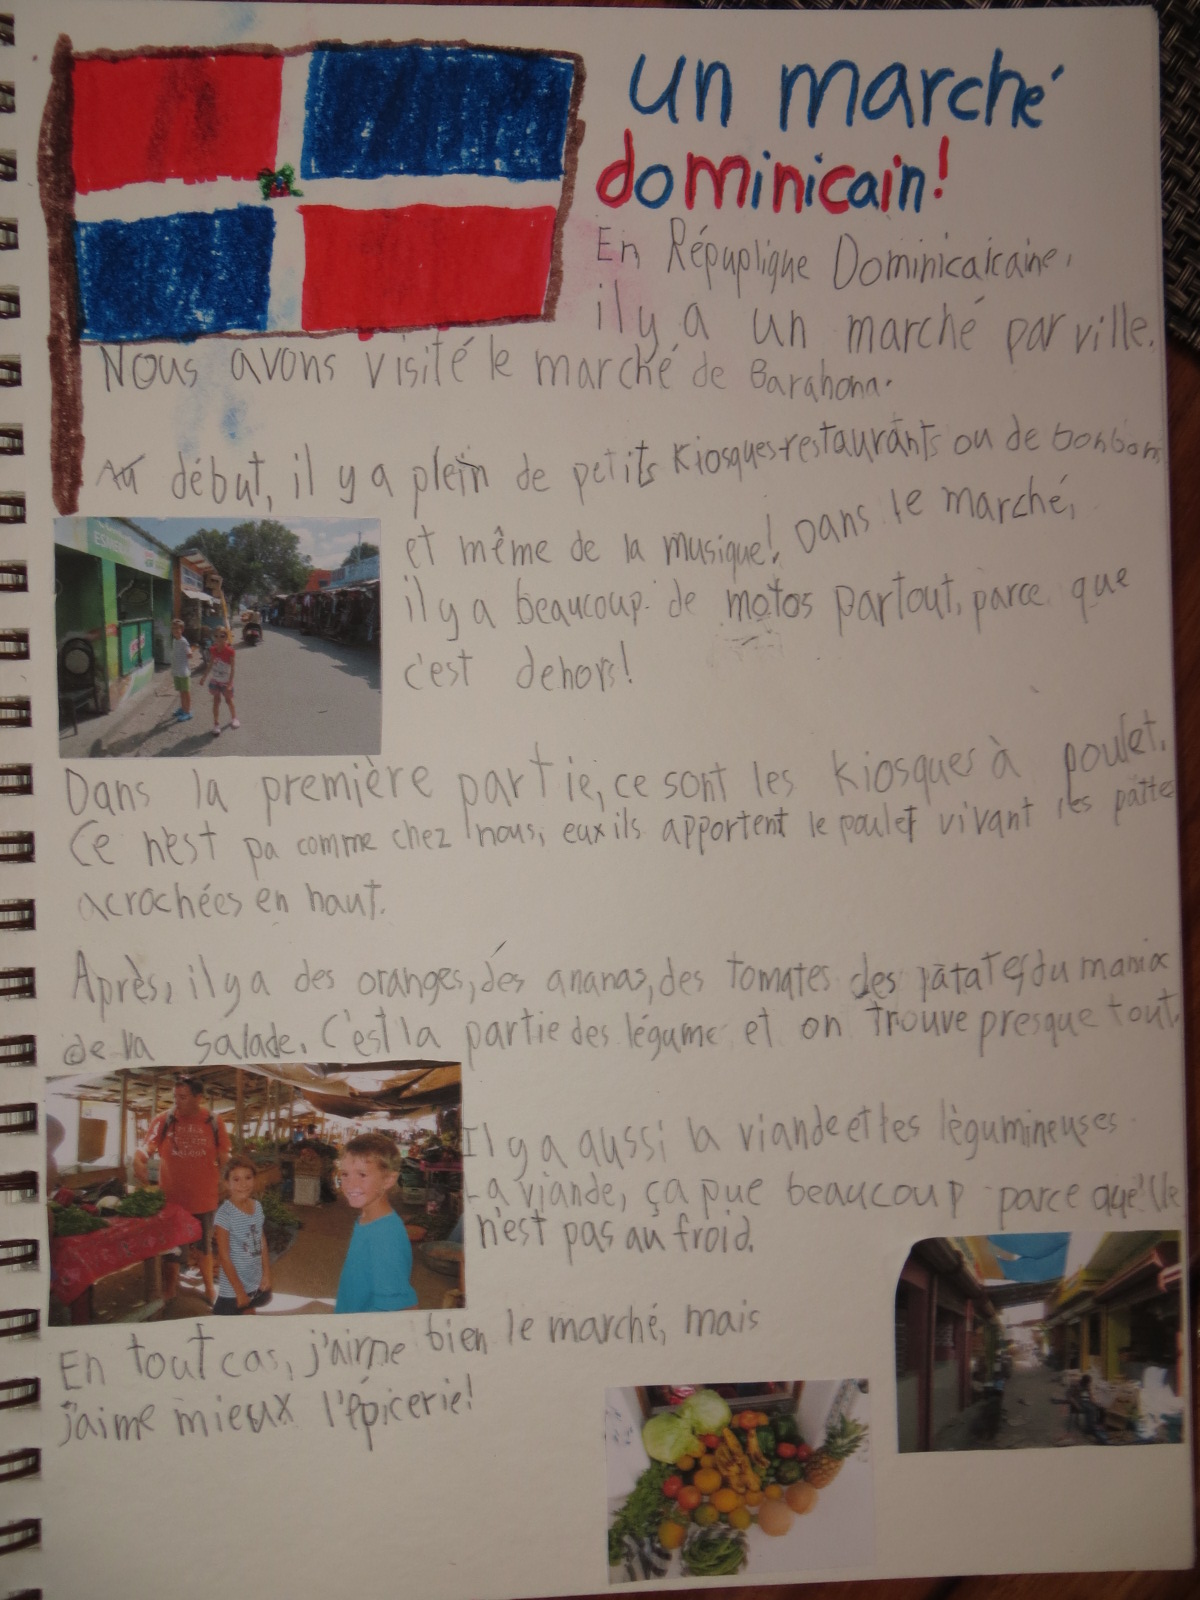 un marché
dominicain!
En Répuplique Dominicaicaine,
il y a un marché par ville.
Nous avons visité le marché de Barahona.
Au début, il y a plein de petits kiosques-restaurants ou de bonbons
et même de la musique! Dans le marché,
il y a beaucoup de motos partout, parce que
c'est dehors!
Dans la première partie, ce sont les kiosques à poulet.
Ce n'est pa comme chez nous, eux ils apportent le poulet vivant les patte
acrochées en haut.
Après, il y a des oranges, dés ananas, des tomates des patates, du manioc
de la salade. C'est la partie des légume et on trouve presque tout.
Il y a aussi la viande et les lègumineuses.
La viande, ça pue beaucoup parce qu'elle
n'est pas au froid.
En tout cas, j'aime bien le marché, mais
j'aime mieux l'épicerie!